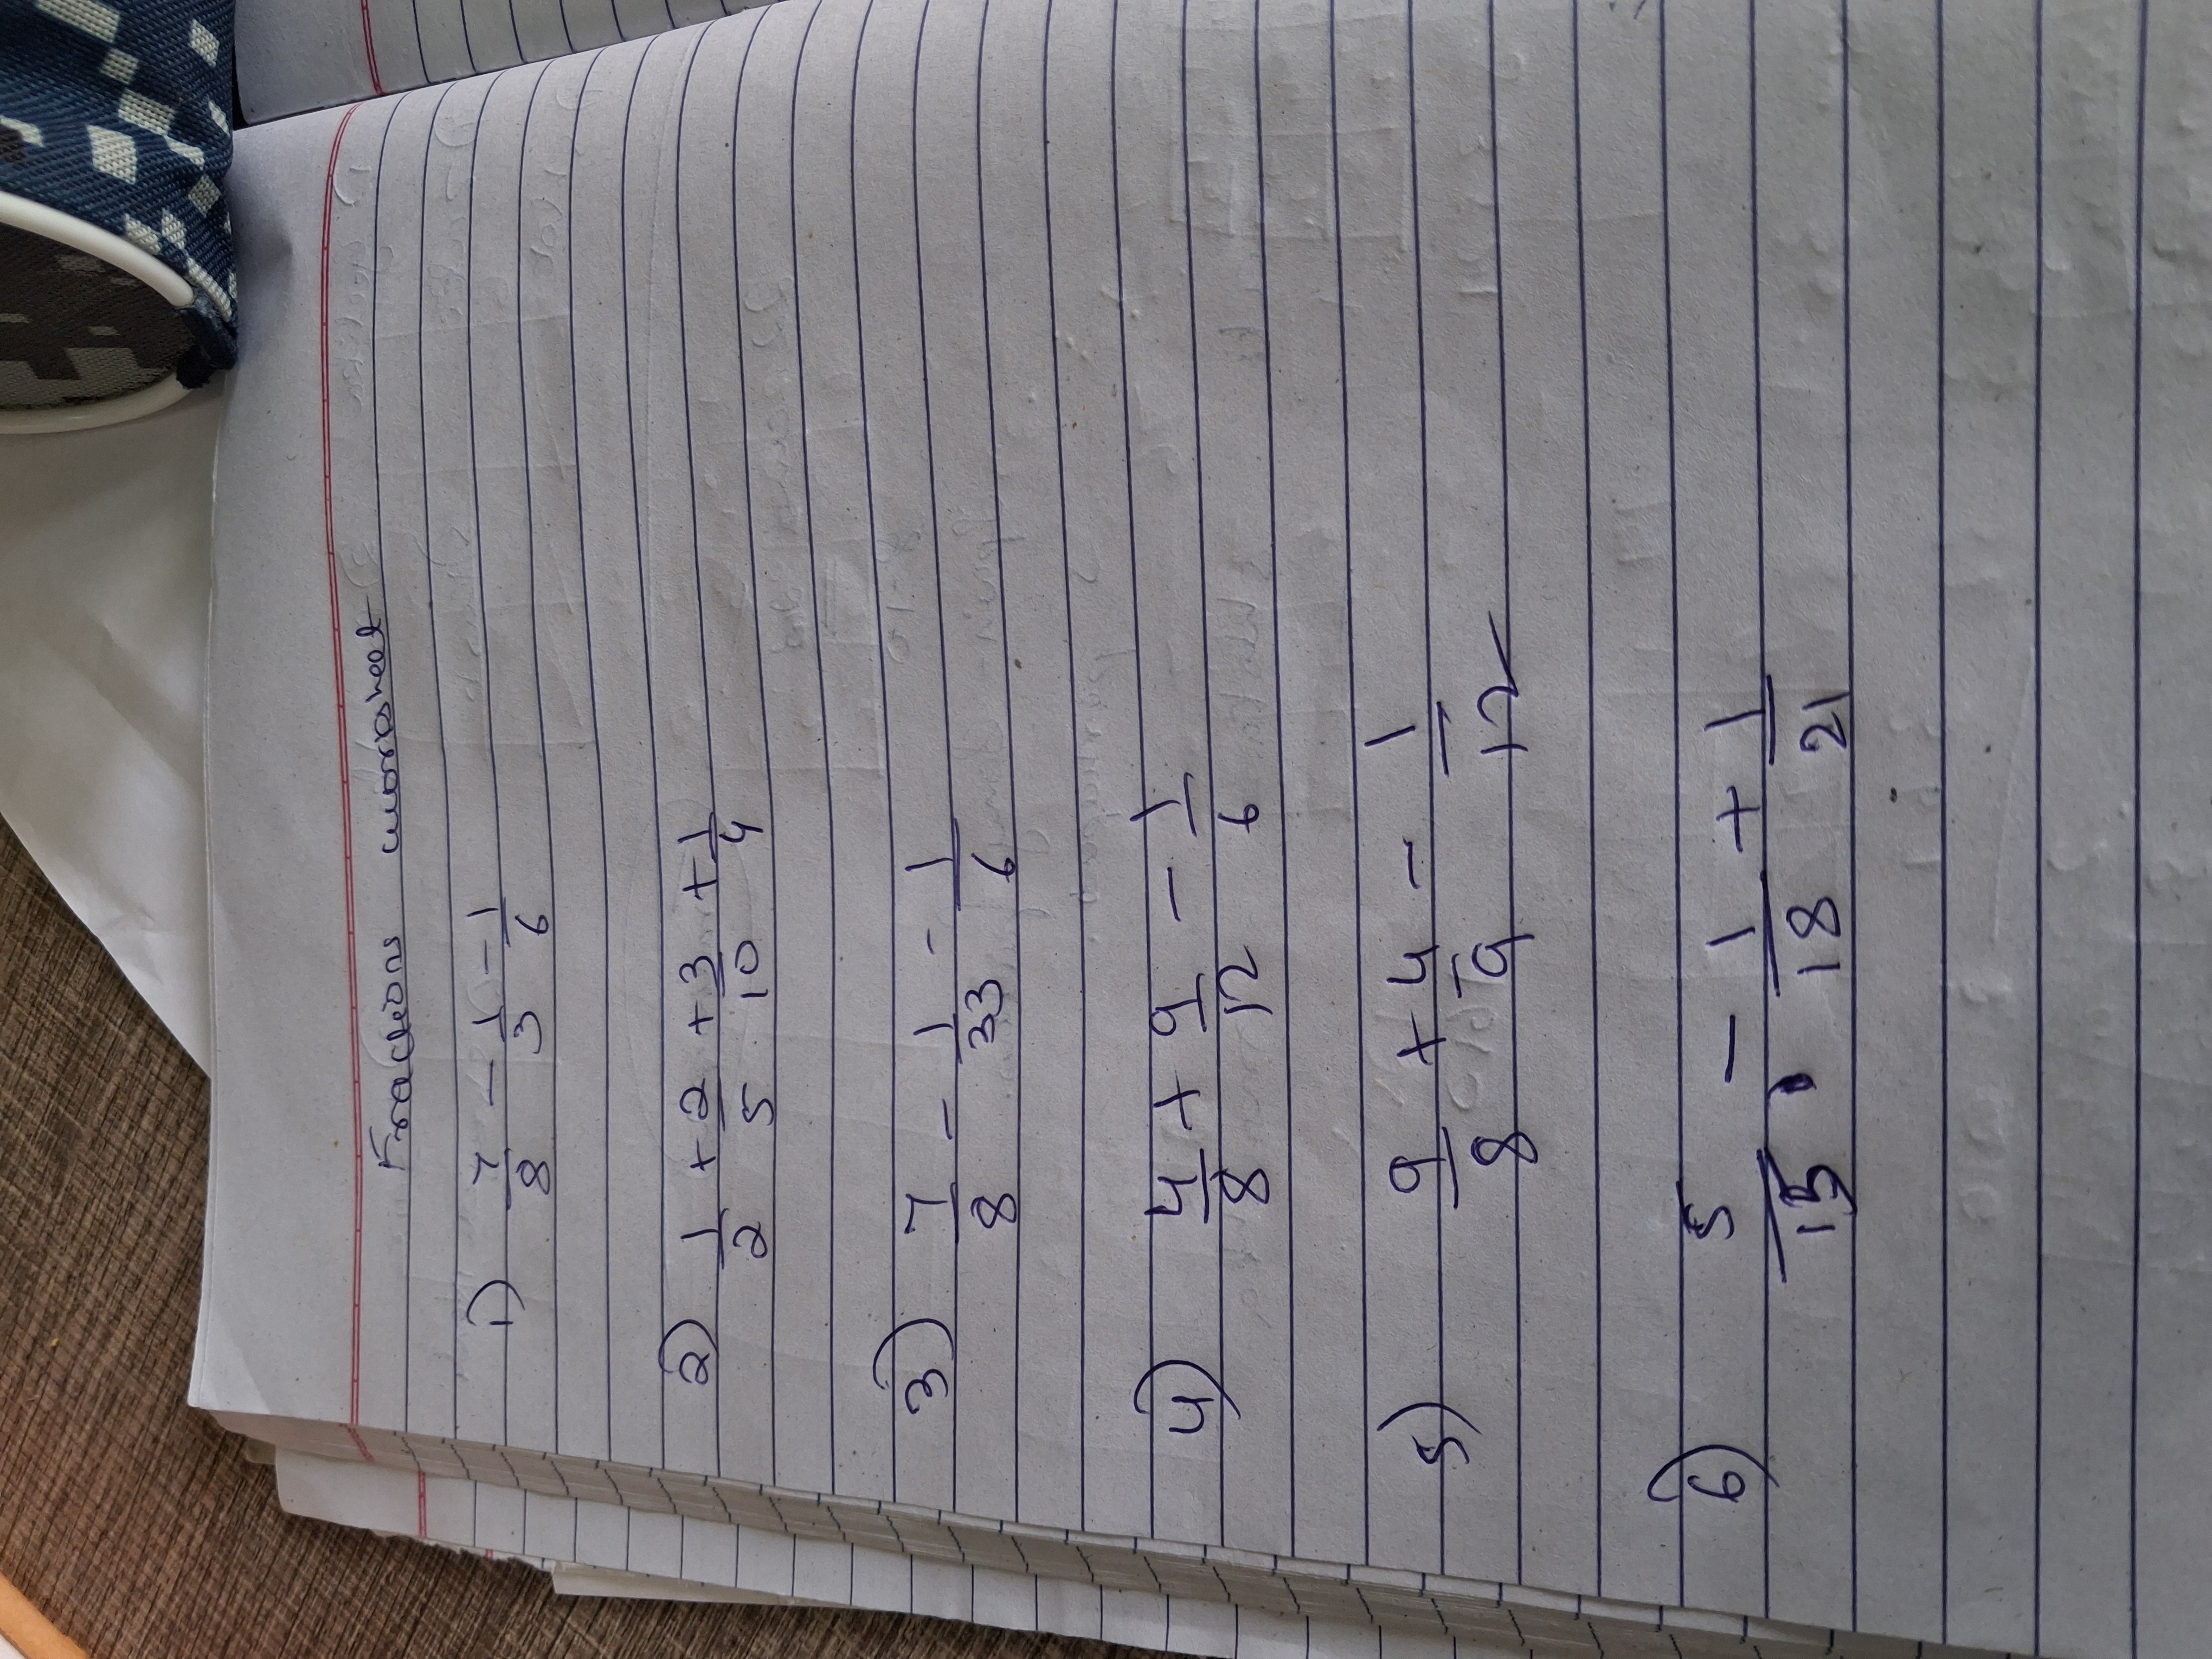 Fractions worksheet
1) 7/8 - 1/3 - 1/6
2) 1/2 + 2/5 + 3/10 + 1/4
3) 7/8 - 1/33 - 1/6
4) 4/8 + 9/12 - 1/6
5) 9/8 + 4/9 - 1/12
6) 5/15 - 1/18 + 1/21